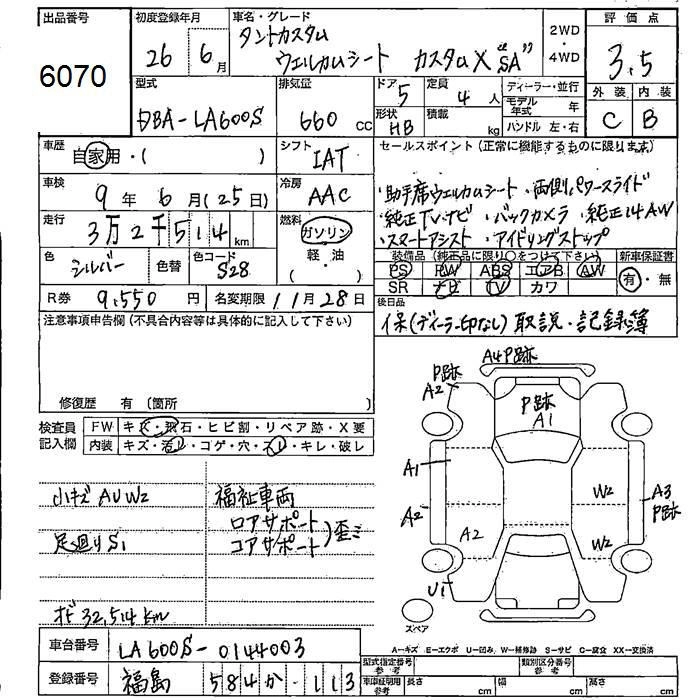 出品番号
6070
初度登録年月
26 6月
車名・グレード
タントカスタム
ウェルカムシート カスタムX "SA"
2WD
・
4WD
評価点
3.5
外装 内装
C B
型式
DBA-LA600S
排気量
660 CC
ドア
5
定員
4人
形状
HB
積載
kg
ディーラー・並行
モデル年式 年
ハンドル 左・右
車歴
自家用・( )
シフト
IAT
車検
9年6月(25日)
冷房
AAC
走行
3万2千514km
燃料
ガソリン
・
軽油
( ・ )
色
シルバー
色替
色コード
S28
R券
9,550円
名変期限
11月28日
セールスポイント(正常に機能するものに限ります)
・助手席ウェルカムシート・両側パワースライド
・純正TV・ナビ・バックカメラ・純正14AW
・スマートアシスト・アイドリングストップ
装備品(純正品に限り○をつけて下さい)
PS PW ABS エアB AW
SR ナビ TV カワ
新車保証書
有・無
後日品
保(ディーラー印なし) 取説・記録簿
注意事項申告欄(不具合内容等は具体的に記入して下さい)
修復歴 有 (箇所
検査員
記入欄
FW キズ・飛石・ヒビ割・リペア跡・X要
内装 キズ・汚レ・コゲ・穴・スレ・キレ・破レ
小キズ AU W2
足廻りS1
オド 32,514km
福祉車両
ロアサポート
コアサポート)歪ミ
A4 P跡
P跡
A2
P跡
A1
A1
A2
A2
U1
W2
W2
A3
P跡
スペア
A-キズ E-エクボ U-凹み W-補修跡 S-サビ C-腐食 XX-交換済
車台番号
LA600S-0144003
登録番号
福島 584か・113
型式指定番号
参考
類別区分番号
参考
車庫証明用
参考
長さ cm 幅 cm 高さ cm